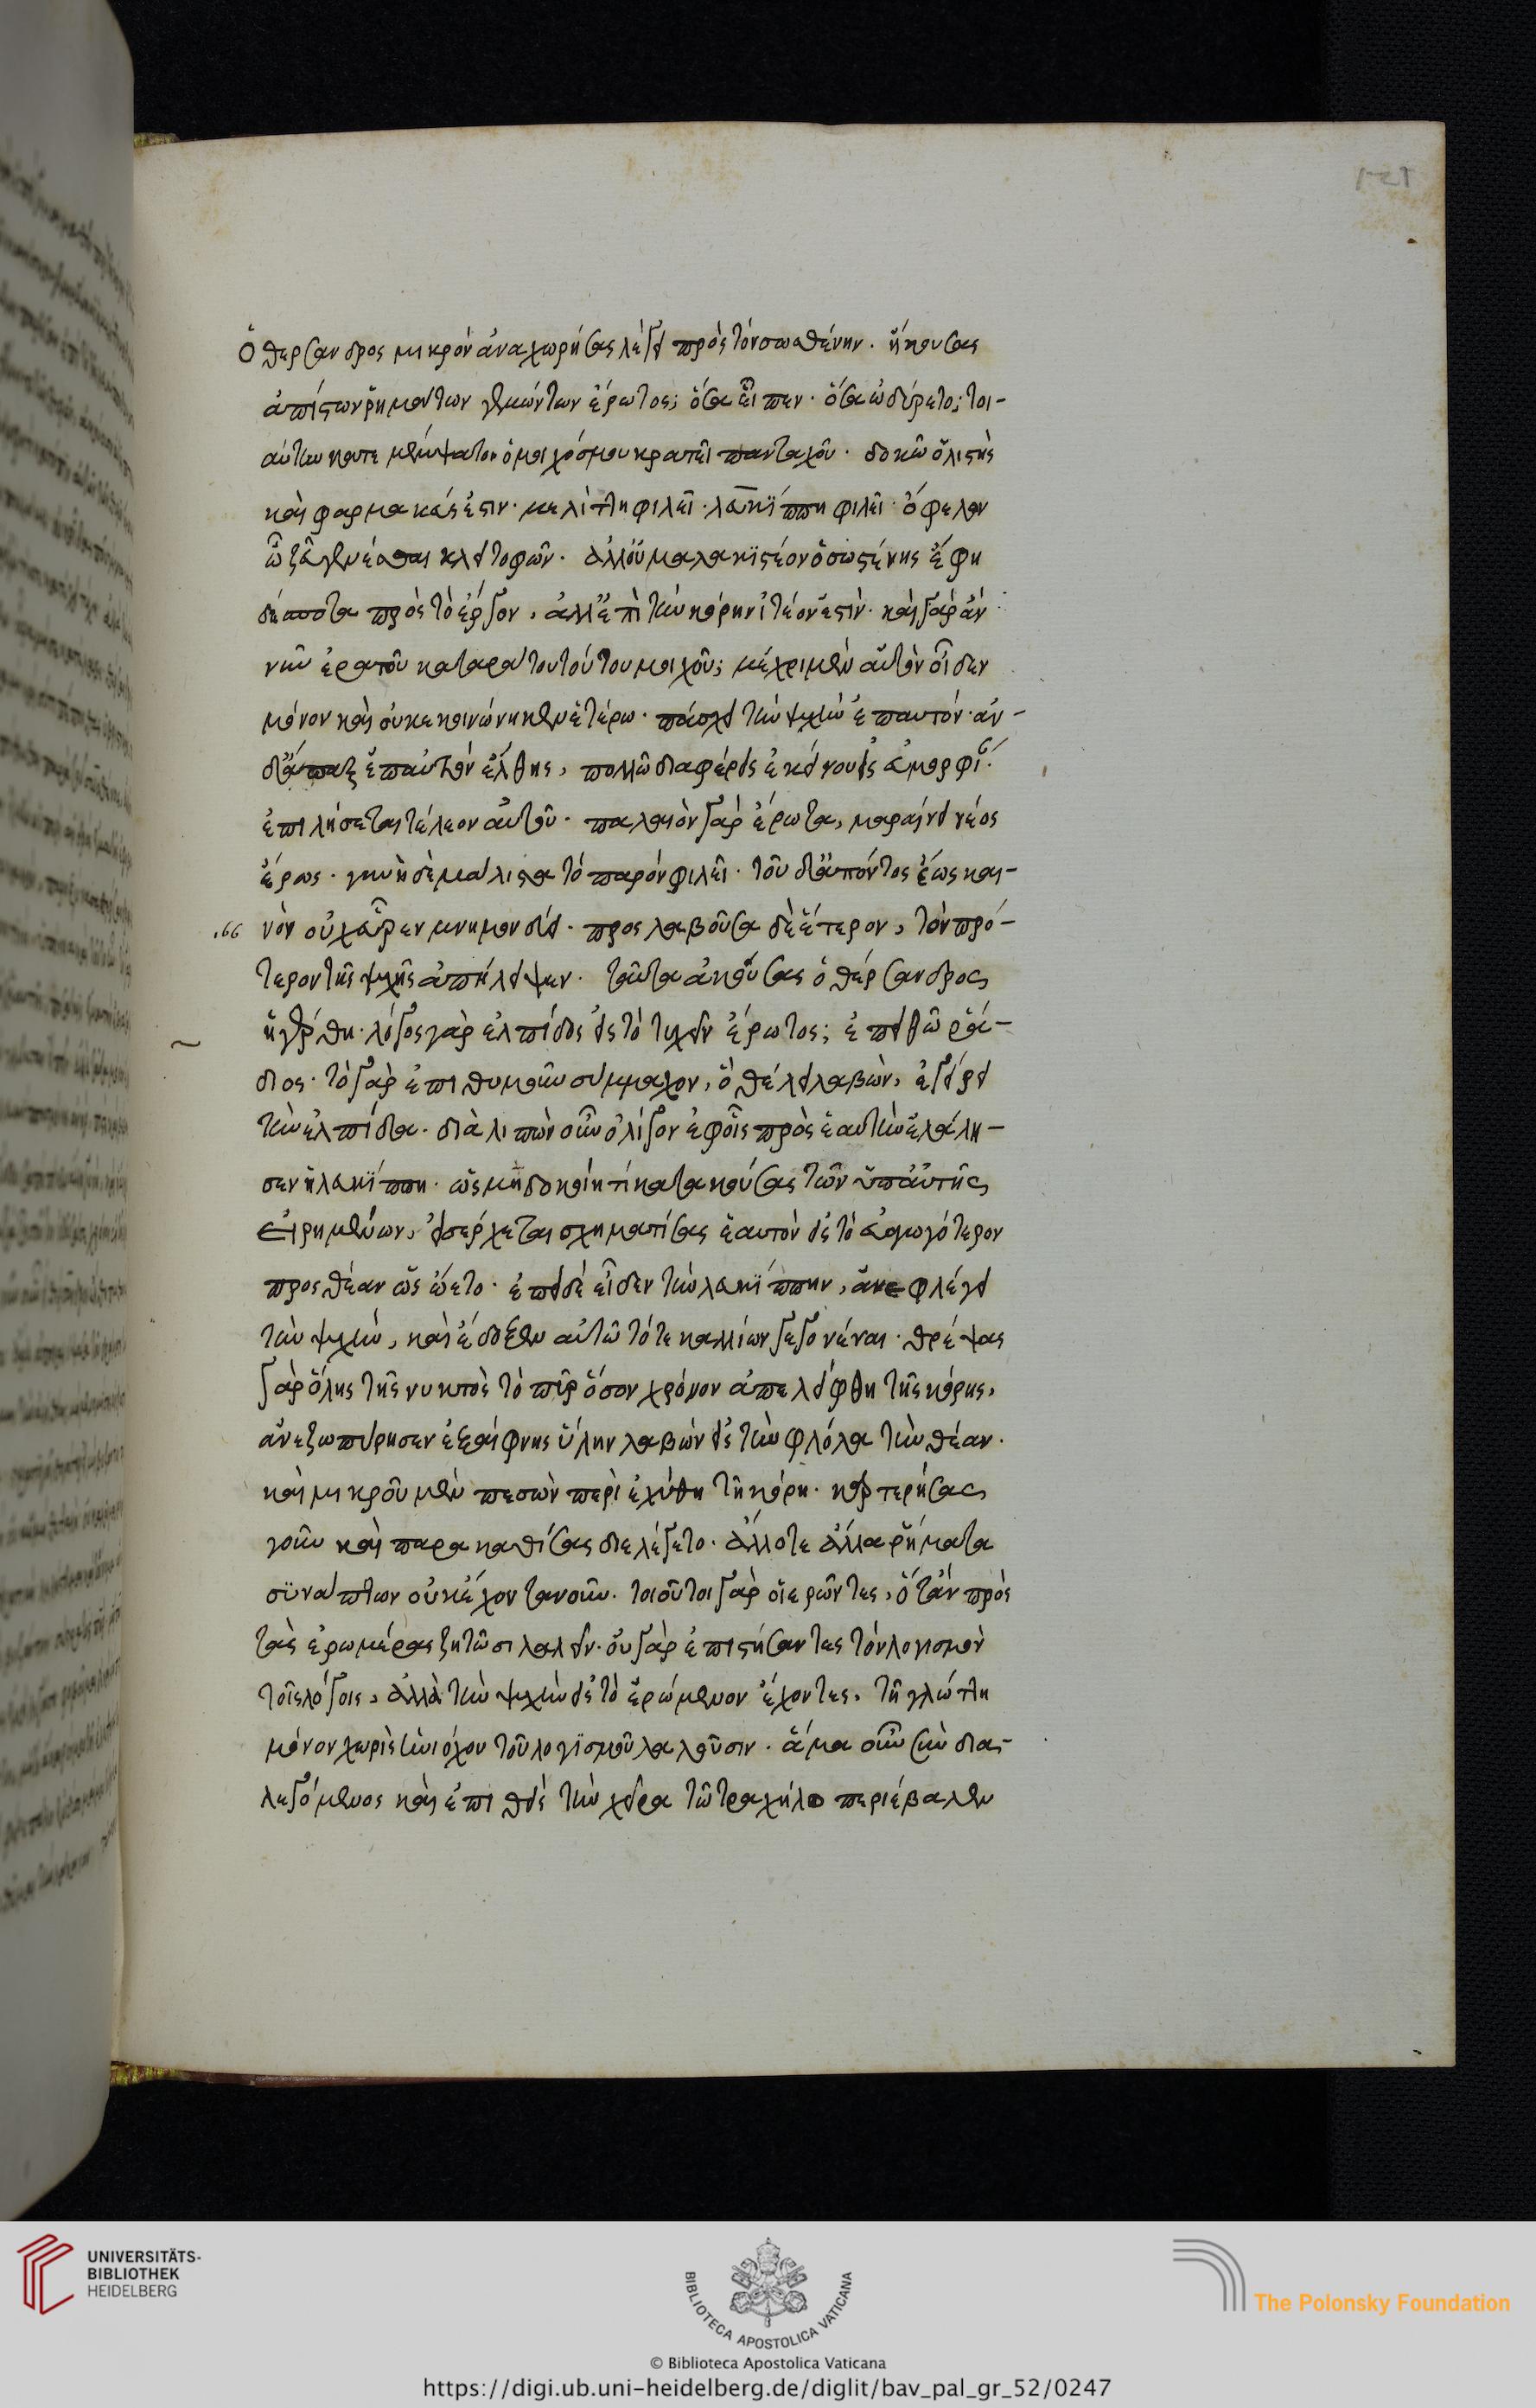 Ὁ θερσανδρος μικρὸν ἀναχωρήσας λέγει πρὸς τὸν σωσθένην. ἤκουσας
ἀπίστων ῥημάτων γεμόντων ἔρωτος; ὅσα εἶπεν. ὅσα ὠδύρετο; τοι-
πανταχοῦ. δοκῶ ὁ λιστὴς
καὶ φαρμακός ἐστιν. μελίττη φιλεῖ. λακίππη φιλεῖ. ὄφελον
ὦ ζεῦ γενέσθαι κλειτοφῶν. ἀλλ' οὐ μαλακιστέον ὁ σωσθένης ἔφη
δέσποτα πρὸς τὸ ἔργον, ἀλλ' ἐπὶ τὴν κόρην ἰτέον ἐστὶν. καὶ γὰρ ἂν
νῦν ἐρᾷ τοῦ καταράτου τούτου μοιχοῦ; μέχρι μὲν αὐτὸν οἶδεν
μόνον καὶ οὐ κεκοινώνηκεν ἑτέρω. πάσχει τὴν ψυχὴν ἐπ' αὐτόν. ἀν
δ' ἅπαξ ἐπ' αὐτὸν ἔλθης, πολλῶ διαφέρεις ἐκείνου εἰς εὐμορφί.
ἐπιλήσεται τέλεον αὐτοῦ. παλαιὸν γὰρ ἔρωτα, μαραίνει νέος
ἔρως. γυνὴ δὲ μάλιστα τὸ παρὸν φιλεῖ. τοῦ δ' ἀπόντος ἕως και-
νὸν οὐχ εὗρεν μνημονεύει. προσλαβοῦσα δὲ ἕτερον, τὸν πρό-
τερον τῆς ψυχῆς ἀπήλειψεν. ταῦτα ἀκούσας ὁ θέρσανδρος
ἠγέρθη. λόγος γὰρ ἐλπίδος εἰς τὸ τυχεῖν ἔρωτος; ἐς πειθῶ ῥᾴ-
διος. τὸ γὰρ ἐπιθυμοῦν σύμμαχον, ὃ θέλει λαβὼν, ἐγείρει
τὴν ἐλπίδα. διαλιπὼν οὖν ὀλίγον ἐφ' οἷς πρὸς ἑαυτὴν ἐλάλη-
σεν ἡ λακίππη. ὡς μὴ δοκοίη τι κατακούσας τῶν ὑπ' αὐτῆς
εἰρημένων, εἰσέρχεται σχηματίσας ἑαυτὸν εἰς τὸ εὐαγωγότερον
πρὸς θέαν ὡς ᾤετο. ἐπεὶ δὲ εἶδεν τὴν λακίππην, ἀνεφλέγει
τὴν ψυχὴν, καὶ ἔδοξεν αὐτῶ τότε καλλίων γεγονέναι. θρέψας
γὰρ ὅλης τῆς νυκτὸς τὸ πῦρ ὅσον χρόνον ἀπελείφθη τῆς κόρης,
ἀνεζωπύρησεν ἐξαίφνης ὕλην λαβὼν εἰς τὴν φλόγα τὴν θέαν.
καὶ μικροῦ μὲν πεσὼν περιεχύθη τῆ κόρη. καρτερήσας
γοῦν καὶ παρακαθίσας διελέγετο. ἄλλοτε ἄλλα ῥήματα
συνάπτων οὐκ ἔχοντα νοῦν. τοιοῦτοι γὰρ οἱ ἐρῶντες, ὅταν πρὸς
τὰς ἐρωμένας ζητῶσι λαλεῖν. οὐ γὰρ ἐπιστήσαντες τὸν λογισμὸν
τοῖς λόγοις, ἀλλὰ τὴν ψυχὴν εἰς τὸ ἐρώμενον ἔχοντες, τῆ γλώττη
μόνον χωρὶς ἡνιόχου τοῦ λογισμοῦ λαλοῦσιν. ἅμα οὖν διαι-
λεγόμενος καὶ ἐπιθεὶς τὴν χεῖρα τῶ τραχήλω περιέβαλεν
UNIVERSITÄTS-
BIBLIOTHEK
HEIDELBERG
BIBLIOTECA APOSTOLICA VATICANA
The Polonsky Foundation
© Biblioteca Apostolica Vaticana
https://digi.ub.uni-heidelberg.de/diglit/bav_pal_gr_52/0247